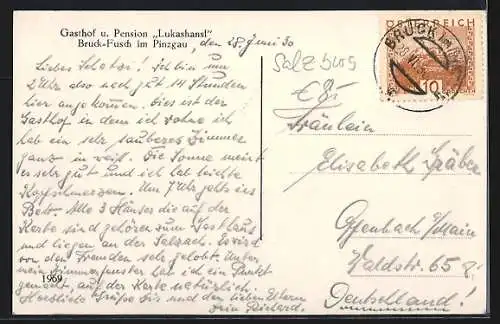 Gasthof u. Pension „Lukashansl"
Bruck-Fusch im Pinzgau
, den 28. Juni 30
Lieber Schatzi! Ich bin um
2 Uhr also nach 14 Stunden
hier angekommen. Dies ist der
Gasthof in dem ich wohne ich
hab ein sehr sauberes Zimmer
ganz in weiß. Die Sonne meint
es sehr gut und ich hab leichte
Kopfschmerzen. Um 7 Uhr gehts ins
Bett. Alle 3 Häuser die auf der
Karte sind gehören zum Gasthaus
und liegen an der Salzach. Es wird
von den Fremden sehr gelobt. Unter
mein Zimmerfenster hab ich ein Punkt
gemacht, auf der Karte natürlich.
Herzliche Grüße Dir und den lieben Eltern
Dein Reichard.
1969
Salzburg
€8.-
ÖSTERREICH
BRUCK
10
GROSCHEN
Fräulein
Elisabeth
Offenbach / Main
Waldstr. 658
Deutschland!